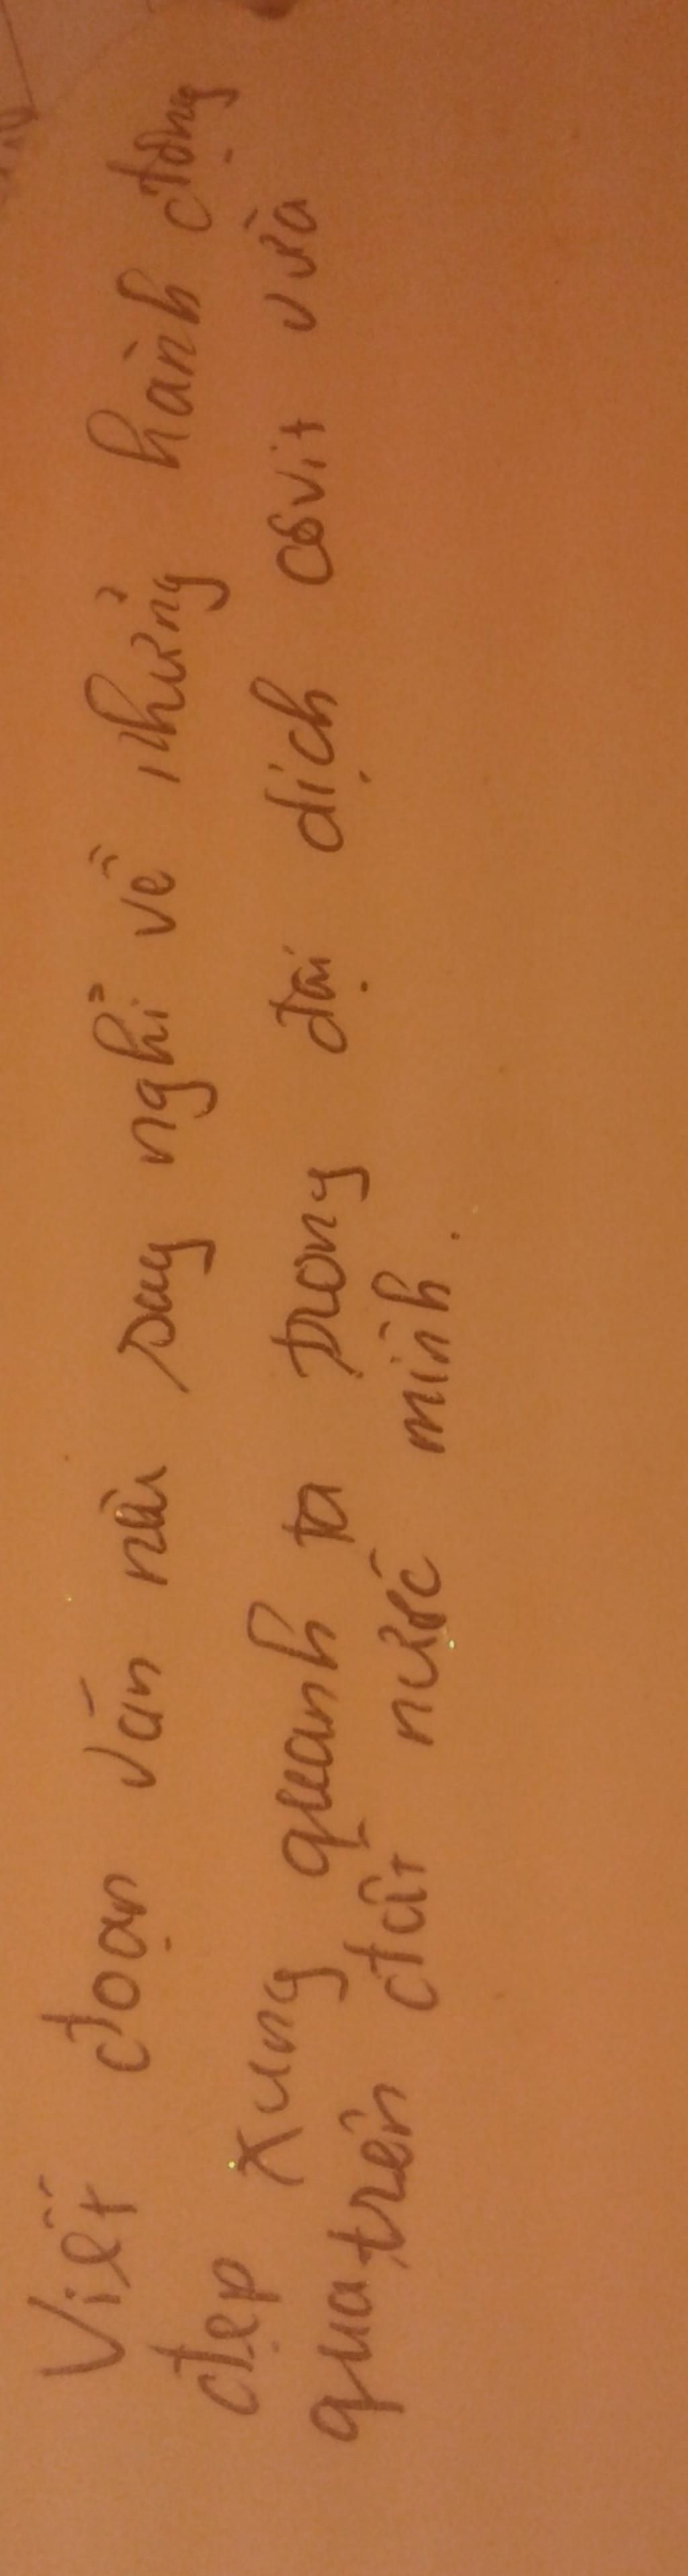 Viết đoạn văn nêu suy nghĩ về những hành động
đẹp xung quanh ta trong đại dịch côvit vừa
qua trên đất nước mình.